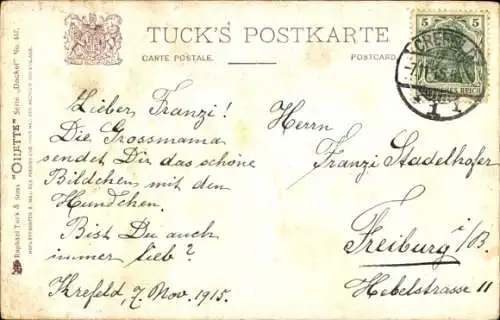 TUCK'S POSTKARTE
CARTE POSTALE.
POSTCARD.
5 5
CREFELD
Raphael Tuck & Sons "OILETTE" Serie „Dackel“ No.
Lieber Franzi!
Die Grossmama
sendet Dir das schöne
Bildchen mit den
Hundchen.
Bist Du auch
immer lieb?
Krefeld, 7. Nov. 1915.
Herrn
Franzi Stadelhofer
Freiburg i/B.
Hebelstrasse 11